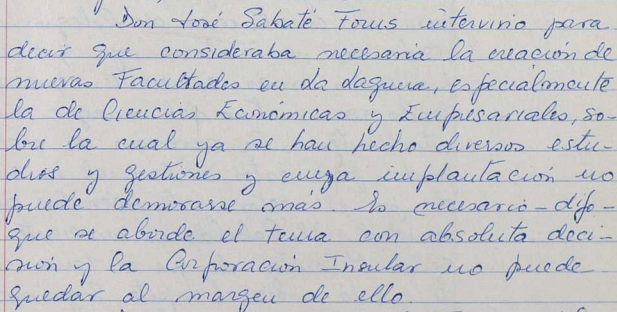 Don José Sabaté Forns intervino para
decir que consideraba necesaria la creación de
nuevas Facultades en La Laguna, especialmente
la de Ciencias Económicas y Empresariales, so-
bre la cual ya se han hecho diversos estu-
dios y gestiones y cuya implantación no
puede demorarse más. Es necesario - dijo -
que se aborde el tema con absoluta deci-
sión y la Corporación Insular no puede
quedar al margen de ello.